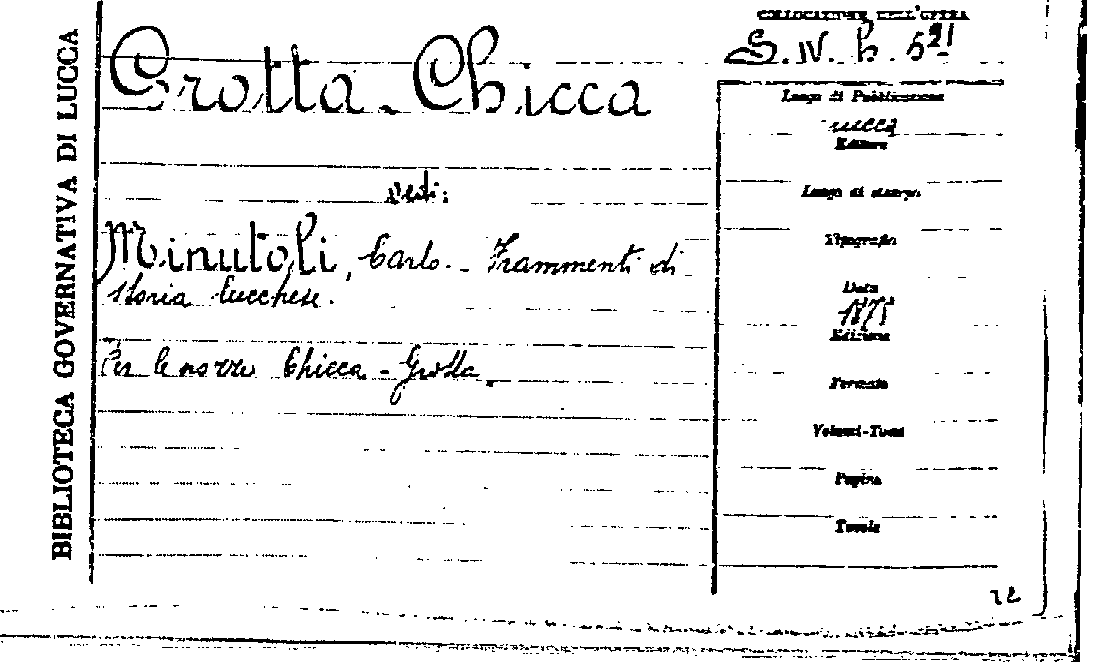 BIBLIOTECA GOVERNATIVA DI LUCCA
Grotta - Chicca
Vedi:
Minutoli, Carlo. - Frammenti di
storia lucchese.
Per le nozze Chicca - Grotta.
COLLOCAZIONE DELL'OPERA
S. IV. h. 521
Luogo di Pubblicazione
Lucca
Editore
Luogo di stampa
Tipografia
Data
1875
Edizione
Formato
Volumi-Tomi
Pagine
Tavole